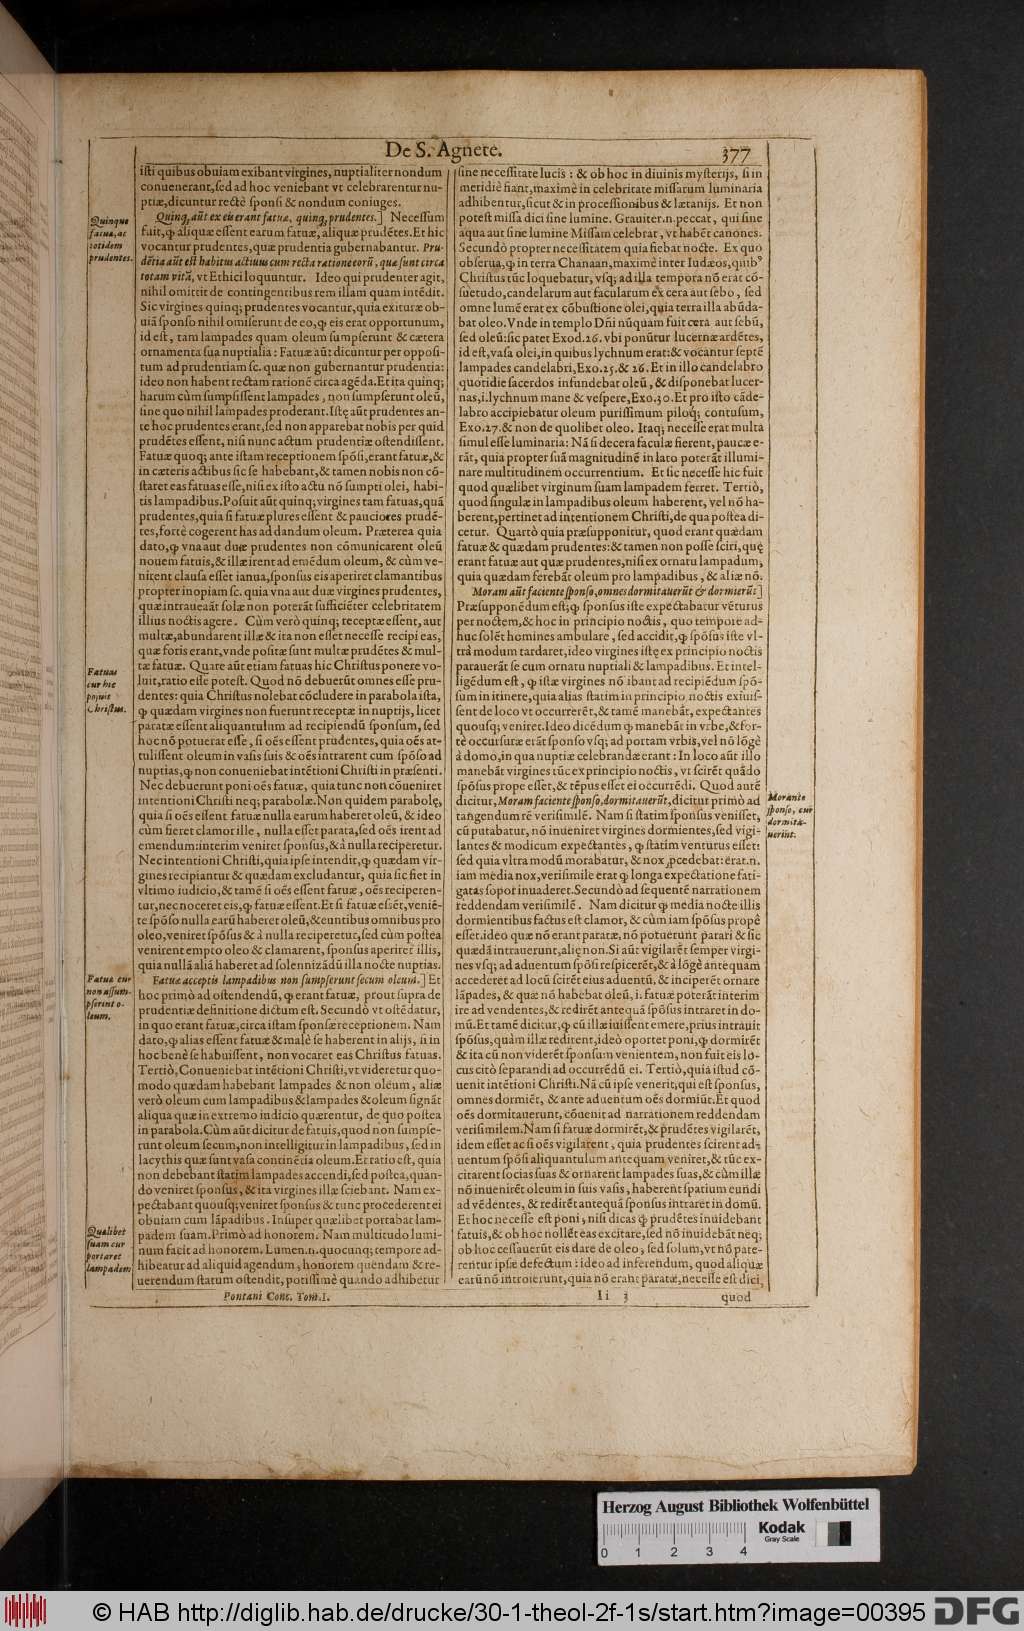 De S. Agnete.
377
isti quibus obuiam exibant virgines, nuptialiter nondum
conuenerant, sed ad hoc veniebant vt celebrarentur nu-
ptiæ, dicuntur rectè sponsi & nondum coniuges.
Quinq, aūt ex eis erant fatuæ, quinq, prudentes.] Necessum
fuit, ꝙ aliquæ essent earum fatuæ, aliquæ prudētes. Et hic
vocantur prudentes, quæ prudentia gubernabantur. Pru-
dētia aūt est habitus actiuus cum recta ratione eorū, quæ sunt circa
totam vitā, vt Ethici loquuntur. Ideo qui prudenter agit,
nihil omittit de contingentibus rem illam quam intēdit.
Sic virgines quinq; prudentes vocantur, quia exituræ ob-
uiā sponso nihil omiserunt de eo, ꝙ eis erat opportunum,
id est, tam lampades quam oleum sumpserunt & cætera
ornamenta sua nuptialia: Fatuæ aūt dicuntur per opposi-
tum ad prudentiam sc. quæ non gubernantur prudentia:
ideo non habent rectam rationē circa agēda. Et ita quinq;
harum cùm sumpsissent lampades, non sumpserunt oleū,
sine quo nihil lampades proderant. Istę aūt prudentes an-
te hoc prudentes erant, sed non apparebat nobis per quid
prudētes essent, nisi nunc actum prudentiæ ostendissent.
Fatuæ quoq; ante istam receptionem spōsi, erant fatuæ, &
in cæteris actibus sic se habebant, & tamen nobis non cō-
staret eas fatuas esse, nisi ex isto actu nō sumpti olei, habi-
tis lampadibus. Posuit aūt quinq; virgines tam fatuas, quā
prudentes, quia si fatuæ plures essent & pauciores prudē-
tes, fortè cogerent has ad dandum oleum. Præterea quia
dato, ꝙ vna aut duæ prudentes non cōmunicarent oleū
nouem fatuis, & illæ irent ad emēdum oleum, & cùm ve-
nirent clausa esset ianua, sponsus eis aperiret clamantibus
propter inopiam sc. quia vna aut duæ virgines prudentes,
quæ intrauerāt solæ non poterāt sufficiēter celebritatem
illius noctis agere. Cùm verò quinq; receptæ essent, aut
multæ, abundarent illæ & ita non esset necesse recipi eas,
quæ foris erant, vnde positæ sunt multæ prudētes & mul-
tæ fatuæ. Quare aūt etiam fatuas hic Christus ponere vo-
luit, ratio esse potest. Quod nō debuerūt omnes esse pru-
dentes: quia Christus nolebat cōcludere in parabola ista,
ꝙ quædam virgines non fuerunt receptæ in nuptijs, licet
paratæ essent aliquantulum ad recipiendū sponsum, sed
hoc nō potuerat esse, si oēs essent prudentes, quia oēs at-
tulissent oleum in vasis suis & oēs intrarent cum spōso ad
nuptias, ꝙ non conueniebat intētioni Christi in præsenti.
Nec debuerunt poni oēs fatuæ, quia tunc non cōueniret
intentioni Christi neq; parabolæ. Non quidem parabolę,
quia si oēs essent fatuæ nulla earum haberet oleū, & ideo
cùm fieret clamor ille, nulla esset parata, sed oēs irent ad
emendum: interim veniret sponsus, & à nulla reciperetur.
Nec intentioni Christi, quia ipse intendit, ꝙ quædam vir-
gines recipiantur & quædam excludantur, quia sic fiet in
vltimo iudicio, & tamē si oēs essent fatuæ, oēs reciperen-
tur, nec noceret eis, ꝙ fatuæ essent. Et si fatuæ essēt, veniē-
te spōso nulla earū haberet oleū, & euntibus omnibus pro
oleo, veniret spōsus & à nulla reciperetur, sed cùm postea
venirent empto oleo & clamarent, sponsus aperiret illis,
quia nullā aliā haberet ad solennizādū illa nocte nuptias.
Fatuæ acceptis lampadibus non sumpserunt secum oleum.] Et
hoc primò ad ostendendū, ꝙ erant fatuæ, prout supra de
prudentiæ definitione dictum est. Secundò vt ostēdatur,
in quo erant fatuæ, circa istam sponsæ receptionem. Nam
dato, ꝙ alias essent fatuæ & malè se haberent in alijs, si in
hoc benè se habuissent, non vocaret eas Christus fatuas.
Tertiò, Conueniebat intētioni Christi, vt videretur quo-
modo quædam habebant lampades & non oleum, aliæ
verò oleum cum lampadibus & lampades & oleum signāt
aliqua quæ in extremo iudicio quærentur, de quo postea
in parabola. Cùm aūt dicitur de fatuis, quod non sumpse-
runt oleum secum, non intelligitur in lampadibus, sed in
lacythis quæ sunt vasa continētia oleum. Et ratio est, quia
non debebant statim lampades accendi, sed postea, quan-
do veniret sponsus, & ita virgines illæ sciebant. Nam ex-
pectabant quousq; veniret sponsus & tunc procederent ei
obuiam cum lāpadibus. Insuper quælibet portabat lam-
padem suam. Primò ad honorem. Nam multitudo lumi-
num facit ad honorem. Lumen.n. quocunq; tempore ad-
hibeatur ad aliquid agendum, honorem quendam & re-
uerendum statum ostendit, potissimè quando adhibetur
Quinque
fatuæ, ac
totidem
prudentes.
Fatuas
cur hic
posuit
Christus.
Fatuæ cur
non assum-
pserint o-
leum.
Quælibet
suam cur
portaret
lampadem
Pontani Conc. Tom. I.
sine necessitate lucis: & ob hoc in diuinis mysterijs, si in
meridiè fiant, maximè in celebritate missarum luminaria
adhibentur, sicut & in processionibus & lætanijs. Et non
potest missa dici sine lumine. Grauiter.n. peccat, qui sine
aqua aut sine lumine Missam celebrat, vt habēt canones.
Secundò propter necessitatem quia fiebat nocte. Ex quo
obserua, ꝙ in terra Chanaan, maximè inter Iudæos, quibꝰ
Christus tūc loquebatur, vsq; ad illa tempora nō erat cō-
suetudo, candelarum aut facularum ex cera aut sebo, sed
omne lumē erat ex cōbustione olei, quia terra illa abūda-
bat oleo. Vnde in templo Dñi nūquam fuit cera aut sebū,
sed oleū: sic patet Exod. 26. vbi ponūtur lucernæ ardētes,
id est, vasa olei, in quibus lychnum erat: & vocantur septē
lampades candelabri, Exo. 25. & 26. Et in illo candelabro
quotidie sacerdos infundebat oleū, & disponebat lucer-
nas, i. lychnum mane & vespere, Exo. 30. Et pro isto cāde-
labro accipiebatur oleum purissimum piloq; contusum,
Exo. 27. & non de quolibet oleo. Itaq; necesse erat multa
simul esse luminaria: Nā si de cera faculæ fierent, paucæ e-
rāt, quia propter suā magnitudinē in lato poterāt illumi-
nare multitudinem occurrentium. Et sic necesse hic fuit
quod quælibet virginum suam lampadem ferret. Tertiò,
quod singulæ in lampadibus oleum haberent, vel nō ha-
berent, pertinet ad intentionem Christi, de qua postea di-
cetur. Quartò quia præsupponitur, quod erant quædam
fatuæ & quædam prudentes: & tamen non posse sciri, quę
erant fatuæ aut quæ prudentes, nisi ex ornatu lampadum,
quia quædam ferebāt oleum pro lampadibus, & aliæ nō.
Moram aūt faciente sponso, omnes dormitauerūt & dormierūt]
Præsupponēdum est; ꝙ sponsus iste expectabatur vēturus
per noctem, & hoc in principio noctis, quo tempore ad-
huc solēt homines ambulare, sed accidit, ꝙ spōsus iste vl-
trà modum tardaret, ideo virgines istę ex principio noctis
parauerāt se cum ornatu nuptiali & lampadibus. Et intel-
ligēdum est, ꝙ istæ virgines nō ibant ad recipiēdum spō-
sum in itinere, quia alias statim in principio noctis exiuis-
sent de loco vt occurrerēt, & tamē manebāt, expectantes
quousq; veniret. Ideo dicēdum ꝙ manebāt in vrbe, & for-
tè occursuræ erāt sponso vsq; ad portam vrbis, vel nō lōgè
à domo, in qua nuptiæ celebrandæ erant: In loco aūt illo
manebāt virgines tūc ex principio noctis, vt scirēt quādo
spōsus prope esset, & tēpus esset ei occurrēdi. Quod autē
dicitur, Moram faciente sponso, dormitauerūt, dicitur primò ad
tangendum rē verisimilē. Nam si statim sponsus venisset,
cū putabatur, nō inueniret virgines dormientes, sed vigi-
lantes & modicum expectantes, ꝙ statim venturus esset:
sed quia vltra modū morabatur, & nox ꝓcedebat: erat.n.
iam media nox, verisimile erat ꝙ longa expectatione fati-
gatas sopor inuaderet. Secundò ad sequentē narrationem
reddendam verisimilē. Nam dicitur ꝙ media nocte illis
dormientibus factus est clamor, & cùm iam spōsus propè
esset. ideo quæ nō erant paratæ, nō potuerunt parari & sic
quædā intrauerunt, alię non. Si aūt vigilarēt semper virgi-
nes vsq; ad aduentum spōsi respicerēt, & à lōgè antequam
accederet ad locū scirēt eius aduentū, & inciperēt ornare
lāpades, & quæ nō habebāt oleū, i. fatuæ poterāt interim
ire ad vendentes, & redirēt antequā spōsus intraret in do-
mū. Et tamē dicitur, ꝙ cū illæ iuissent emere, prius intrauit
spōsus, quàm illæ redirent, ideò oportet poni, ꝙ dormirēt
& ita cū non viderēt sponsum venientem, non fuit eis lo-
cus citò separandi ad occurrēdū ei. Tertiò, quia istud cō-
uenit intētioni Christi. Nā cū ipse venerit, qui est sponsus,
omnes dormiēt, & ante aduentum oēs dormiūt. Et quod
oēs dormitauerunt, cōuenit ad narrationem reddendam
verisimilem. Nam si fatuæ dormirēt, & prudētes vigilarēt,
idem esset ac si oēs vigilarent, quia prudentes scirent ad-
uentum spōsi aliquantulum antequam veniret, & tūc ex-
citarent socias suas & ornarent lampades suas, & cùm illæ
nō inuenirēt oleum in suis vasis, haberent spatium eundi
ad vēdentes, & redirēt antequā sponsus intraret in domū.
Et hoc necesse est poni, nisi dicas ꝙ prudētes inuidebant
fatuis, & ob hoc nollēt eas excitare, sed nō inuidebāt neq;
ob hoc cessauerūt eis dare de oleo, sed solum, vt nō pate-
rentur ipsæ defectum: ideo ad inferendum, quod aliquæ
earū nō introierunt, quia nō erant paratæ, necesse est dici,
Morante
sponso, cur
dormita-
uerint.
Ii 3
quod
Herzog August Bibliothek Wolfenbüttel
Kodak
Gray Scale
0 1 2 3 4
© HAB http://diglib.hab.de/drucke/30-1-theol-2f-1s/start.htm?image=00395
DFG